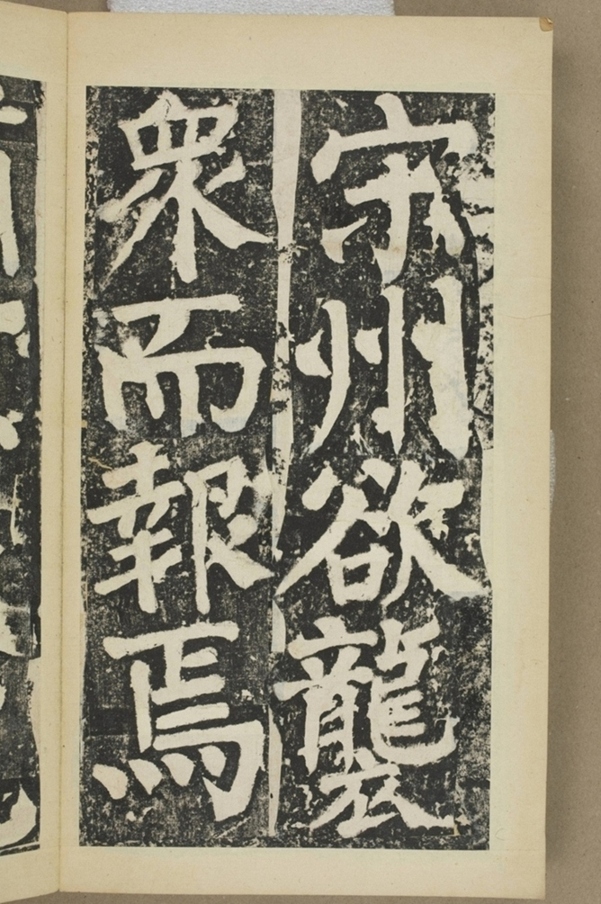 宋州欲襲
衆而報焉